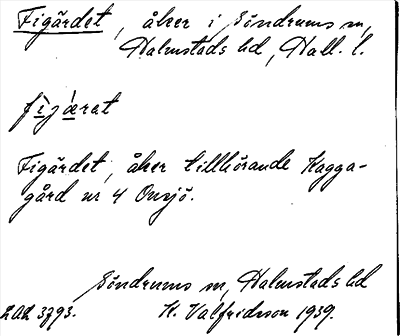 Figärdet, åker i Söndrums sn,
Halmstads hd, Hall. l.
fìjæ̀rat
Figärdet, åker tillhörande Kagga-
gård nr 4 Onsjö.
Söndrums sn, Halmstads hd
LOL 3793. H. Valfridsson 1939.